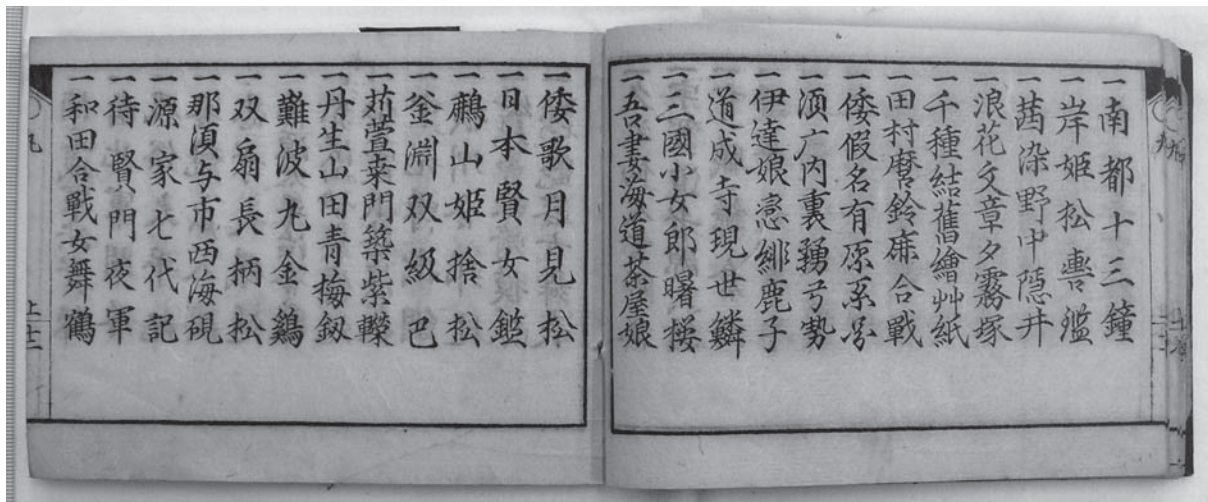 一南都十三鐘
一岸姫松轡濫
一茜染野中隠井
一浪花文章夕霧塚
一千種結舊繪艸紙
一田村麿鈴鹿合戰
一倭假名有原系圖
一須广内裏弓勢
一伊達娘戀緋鹿子
一道成寺現世鱗
一三國小女郎曙桜
一吾妻海道茶屋娘
一倭歌月見松
一日本賢女鑑
一鶊山姫捨松
一釜淵双級巴
一苅萱桒門築紫轢
一丹生山田青梅釼
一難波丸金鷄
一双扇長柄松
一那須与市西海硯
一源家七代記
一待賢門夜軍
一和田合戰女舞鶴
〇九
上十二